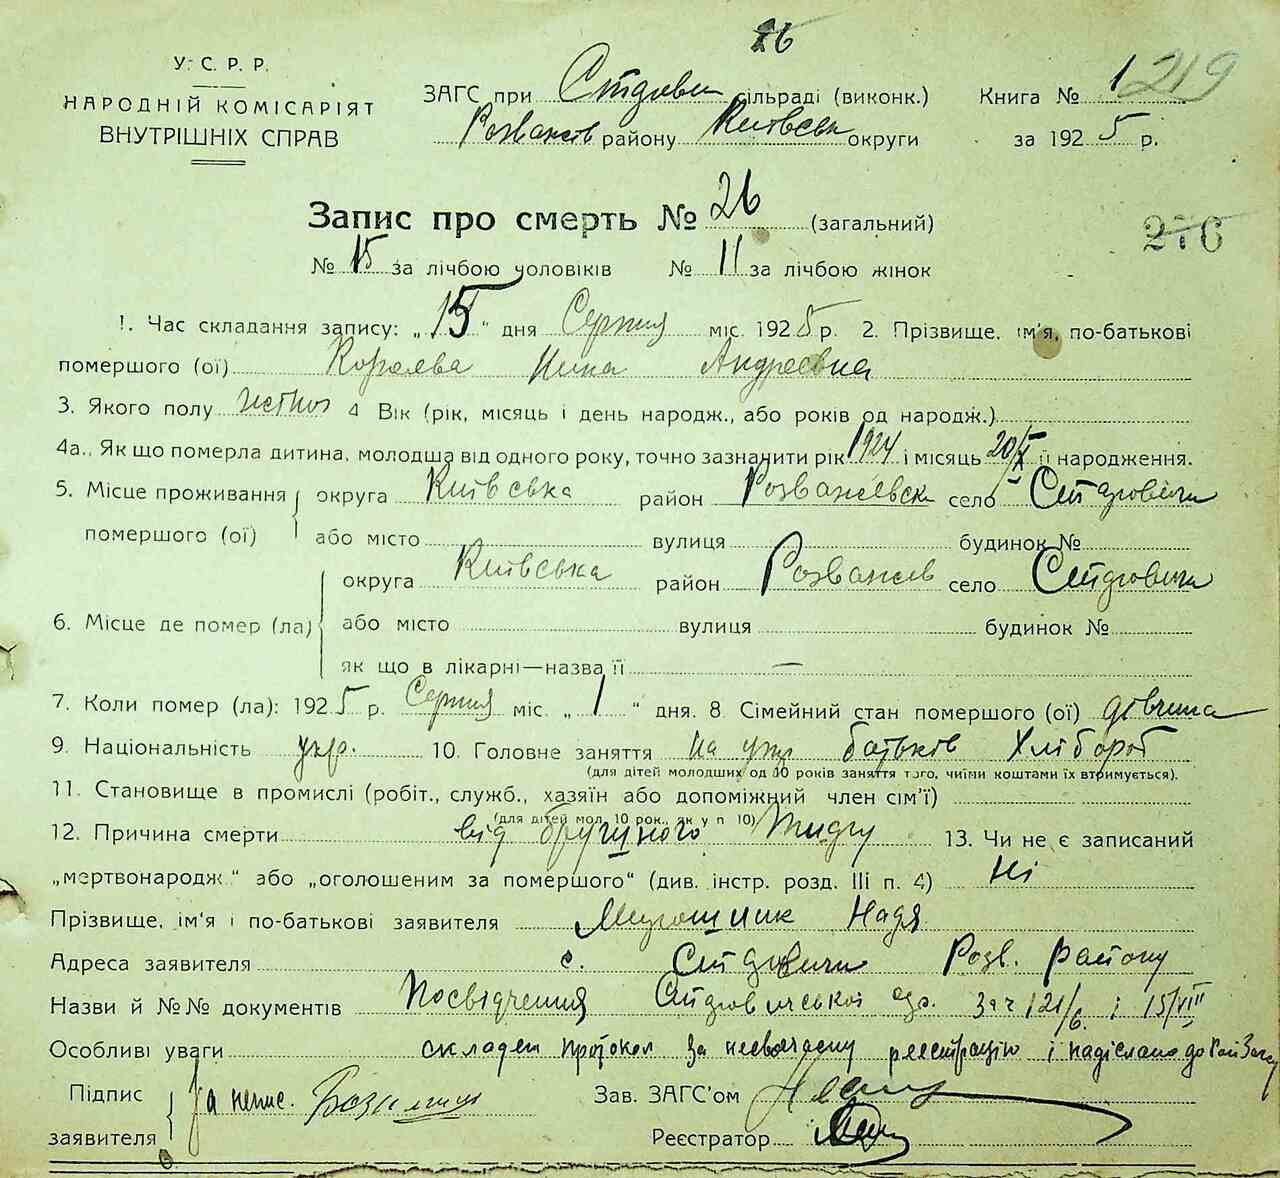 26
У.С.Р.Р.
НАРОДНІЙ КОМІСАРІЯТ
ВНУТРІШНІХ СПРАВ
ЗАГС при сільраді (виконк.)
Розважів району Київськ округи
Книга № 1 219
за 1925 р.
Запис про смерть № 26 (загальний)
276
№ 15 за лічбою чоловіків № 11 за лічбою жінок
1. Час складання запису: „15“ дня Серпня міс. 1925 р. 2. Прізвище, ім'я, по-батькові
помершого (ої) Королева Нина Андреевна
3. Якого полу 4 Вік (рік, місяць і день народж., або років од народж.)
4а., Як що померла дитина, молодша від одного року, точно зазначити рік 1924 і місяць 20/X її народження.
5. Місце проживання помершого (ої) округа Київська район Розважевск село
або місто вулиця будинок №
6. Місце де помер (ла) округа Київська район Розважев село
або місто вулиця будинок №
як що в лікарні—назва її —
7. Коли помер (ла): 1925 р. Серпня міс. „1“ дня. 8 Сімейний стан помершого (ої) дівчина
9. Національність укр. 10. Головне заняття на утр батьків Хлібороб
(для дітей молодших од 10 років заняття того, чиїми коштами їх втримується).
11. Становище в промислі (робіт., служб., хазяїн або допоміжний член сім'ї)
(для дітей мол. 10 рок., як у п 10)
12. Причина смерти від брушного тифу 13. Чи не є записаний
„мертвонародж.“ або „оголошеним за помершого“ (див. інстр. розд. III п. 4) Ні
Прізвище, ім'я і по-батькові заявителя Надя
Адреса заявителя с. Розв. району
Назви й №№ документів Посвідчення 121/6 і 15/VIII
Особливі уваги складен протокол за несвоєчасну реєстрацію і надіслано до Рай Загсу
Підпис заявителя За непис.
Зав. ЗАГС'ом
Реєстратор